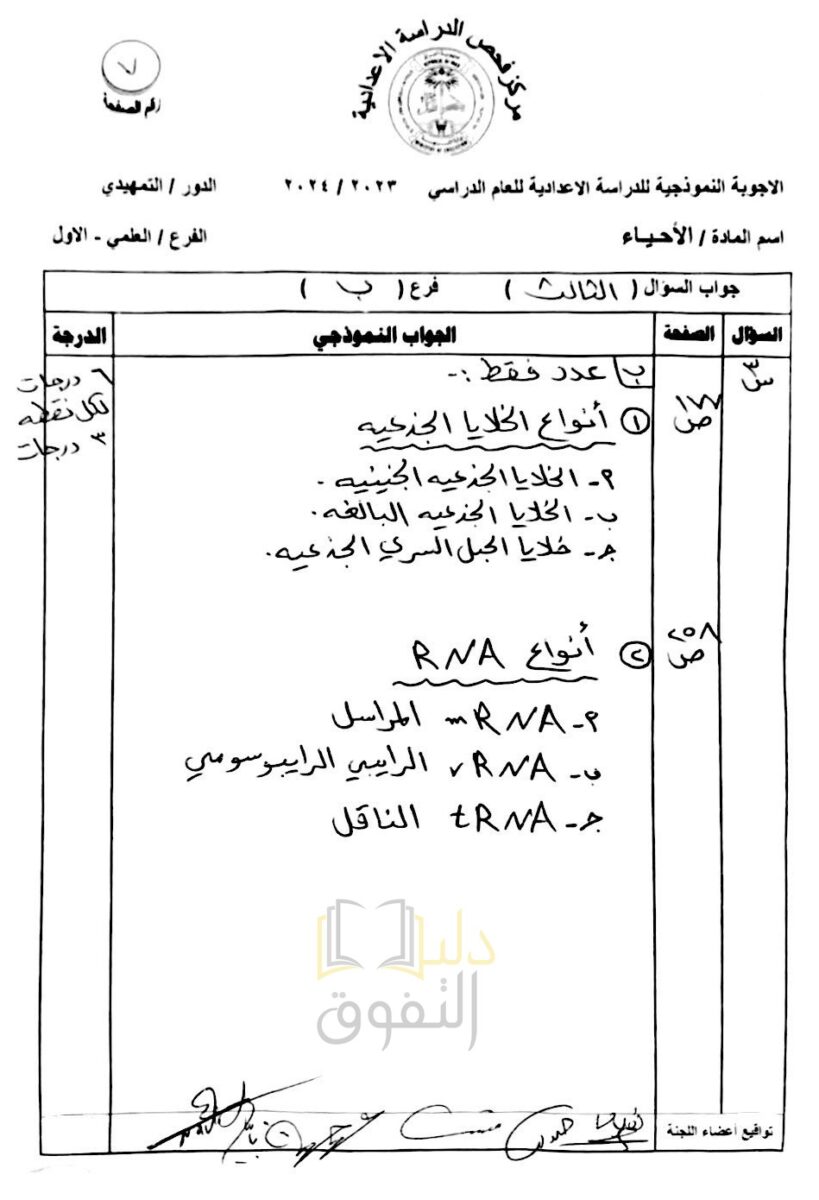 مركز فحص الدراسة الاعدادية
٧
رقم الصفحة
الاجوبة النموذجية للدراسة الاعدادية للعام الدراسي ٢٠٢٣ / ٢٠٢٤
الدور / التمهيدي
اسم المادة / الأحياء
الفرع / العلمي - الاول
جواب السؤال ( الثالث ) فرع ( ب )
السؤال الصفحة الجواب النموذجي الدرجة
س٣
ب/ عدد فقط :-
٦ درجات
لكل نقطه
٣ درجات
ص ١٧٧
① أنواع الخلايا الجذعيه
٢- الخلايا الجذعيه الجنينيه .
ب- الخلايا الجذعيه البالغه.
جـ- خلايا الحبل السري الجذعيه.
ص ٢٥٨
② أنواع RNA
٢- mRNA المراسل
ب- rRNA الرايبي الرايبوسومي
جـ- tRNA الناقل
دليل
التفوق
تواقيع أعضاء اللجنة